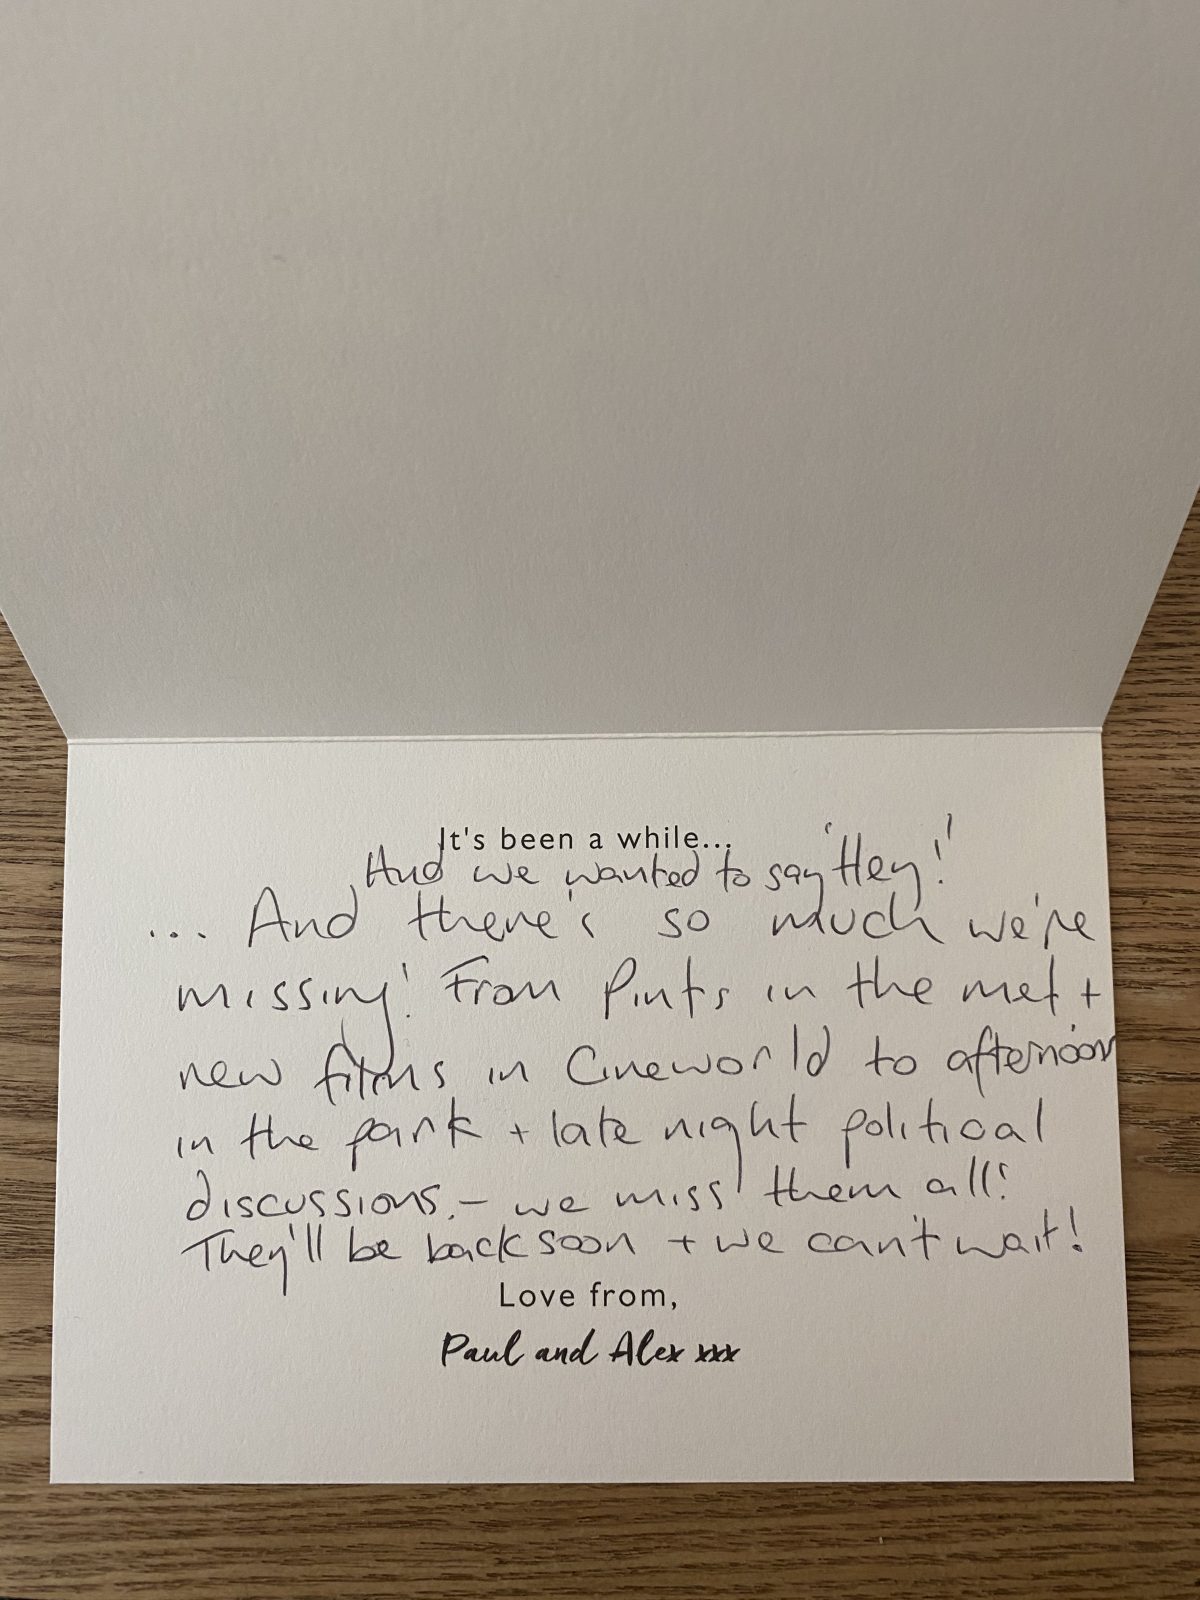 It's been a while...
And we wanted to say 'Hey!'
... And there's so much we're
missing! From Pints in the met +
new films in Cineworld to afternoon
in the park + late night political
discussions. - we miss them all!
They'll be back soon + we can't wait!
Love from,
Paul and Alex xxx